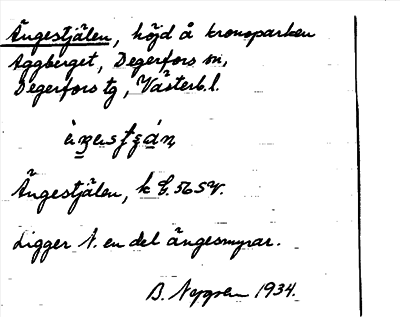 Ängestjälen, höjd å kronoparken
Aggberget, Degerfors sn,
Degerfors tg, Västerb.l.
Ängestjälen, k
Ligger N. en del ängesmyrar.
B. Nygren 1934.